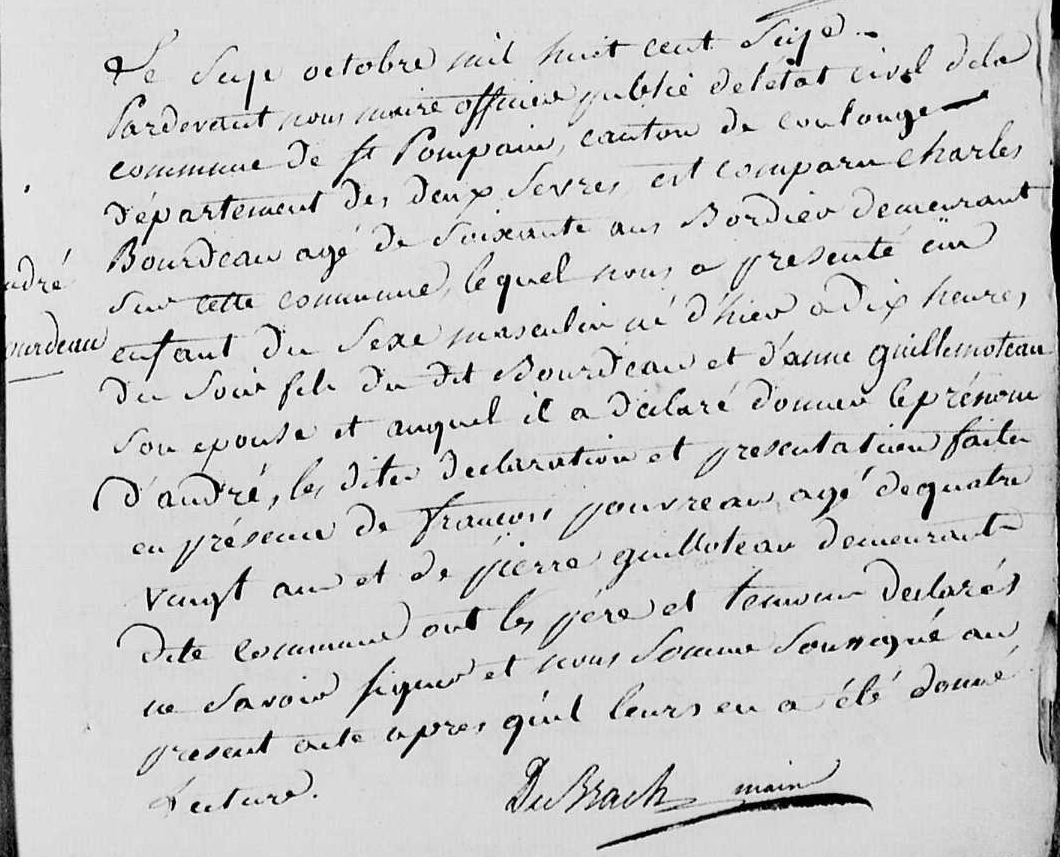 Le seize octobre mil huit cent seize.
Pardevant nous maire officier publié de l'état civil de la
commune de st Pompain, canton de coulonge
département des deux sevres, est comparu charles
Bourdeau agé de soixante ans Bordier demeurant
sur cette commune, lequel nous a presenté un
enfant du sexe masculin né d'hier a dix heures
du soir fils du dit Bourdeau et d'anne guillemoteau
son epouse et auquel il a déclaré donner le prénom
d'andré, les dites declaration et presentation faites
en présence de françois pouvreau agé de quatre
vingt ans et de pierre guilloteau demeurant
dite commune ont les père et temoins declarés
ne savoir signer et nous somme soussigné au
present acte apres qu'il leurs en a été donné
Lecture.
DuBrach maire
ndré
ourdeau